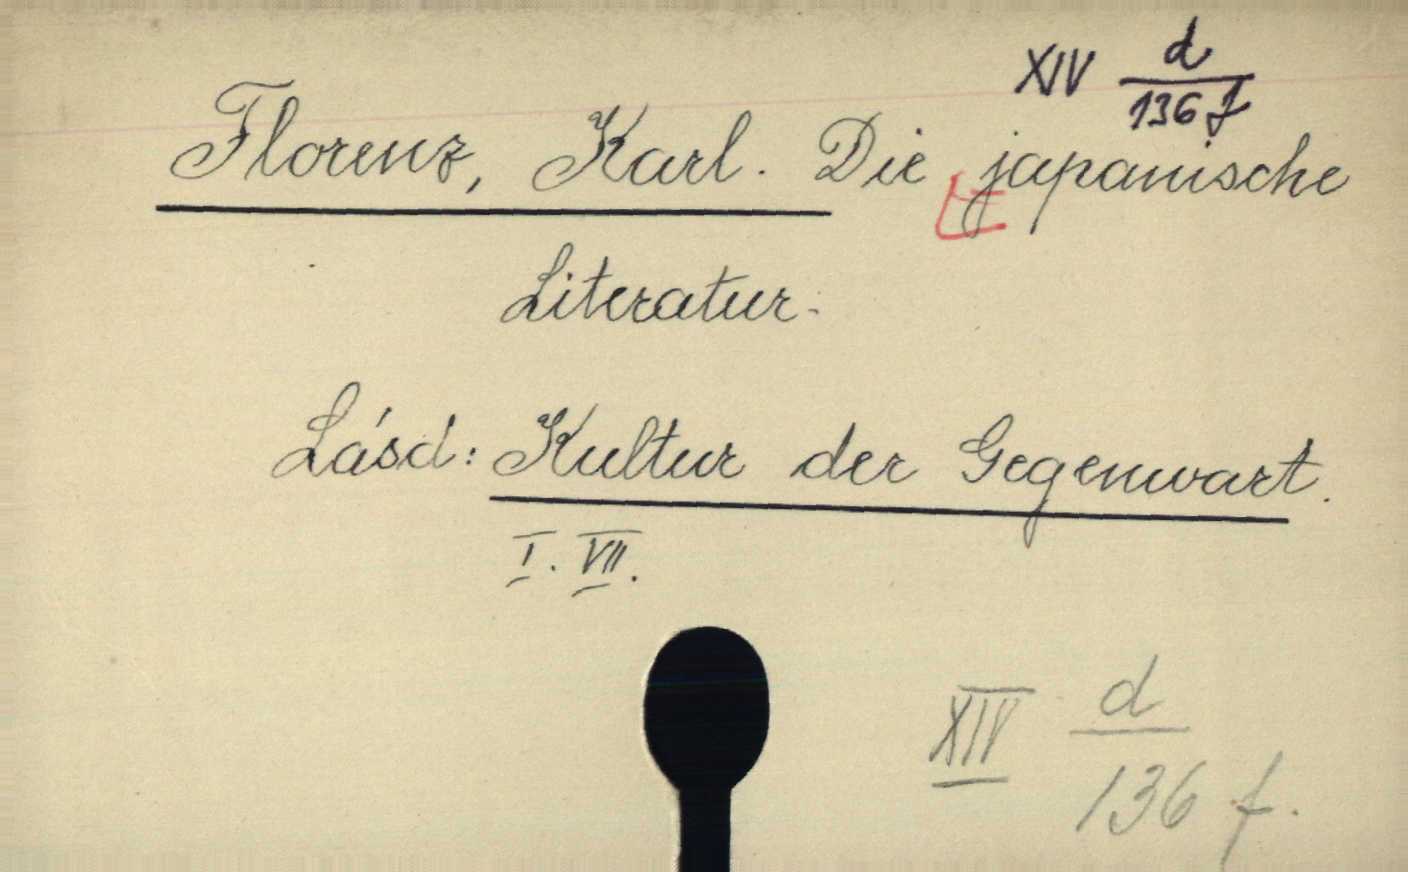 XIV d/136 f
Florenz, Karl. Die japanische
Literatur.
Lásd: Kultur der Gegenwart.
I. VII.
XIV d/136 f.